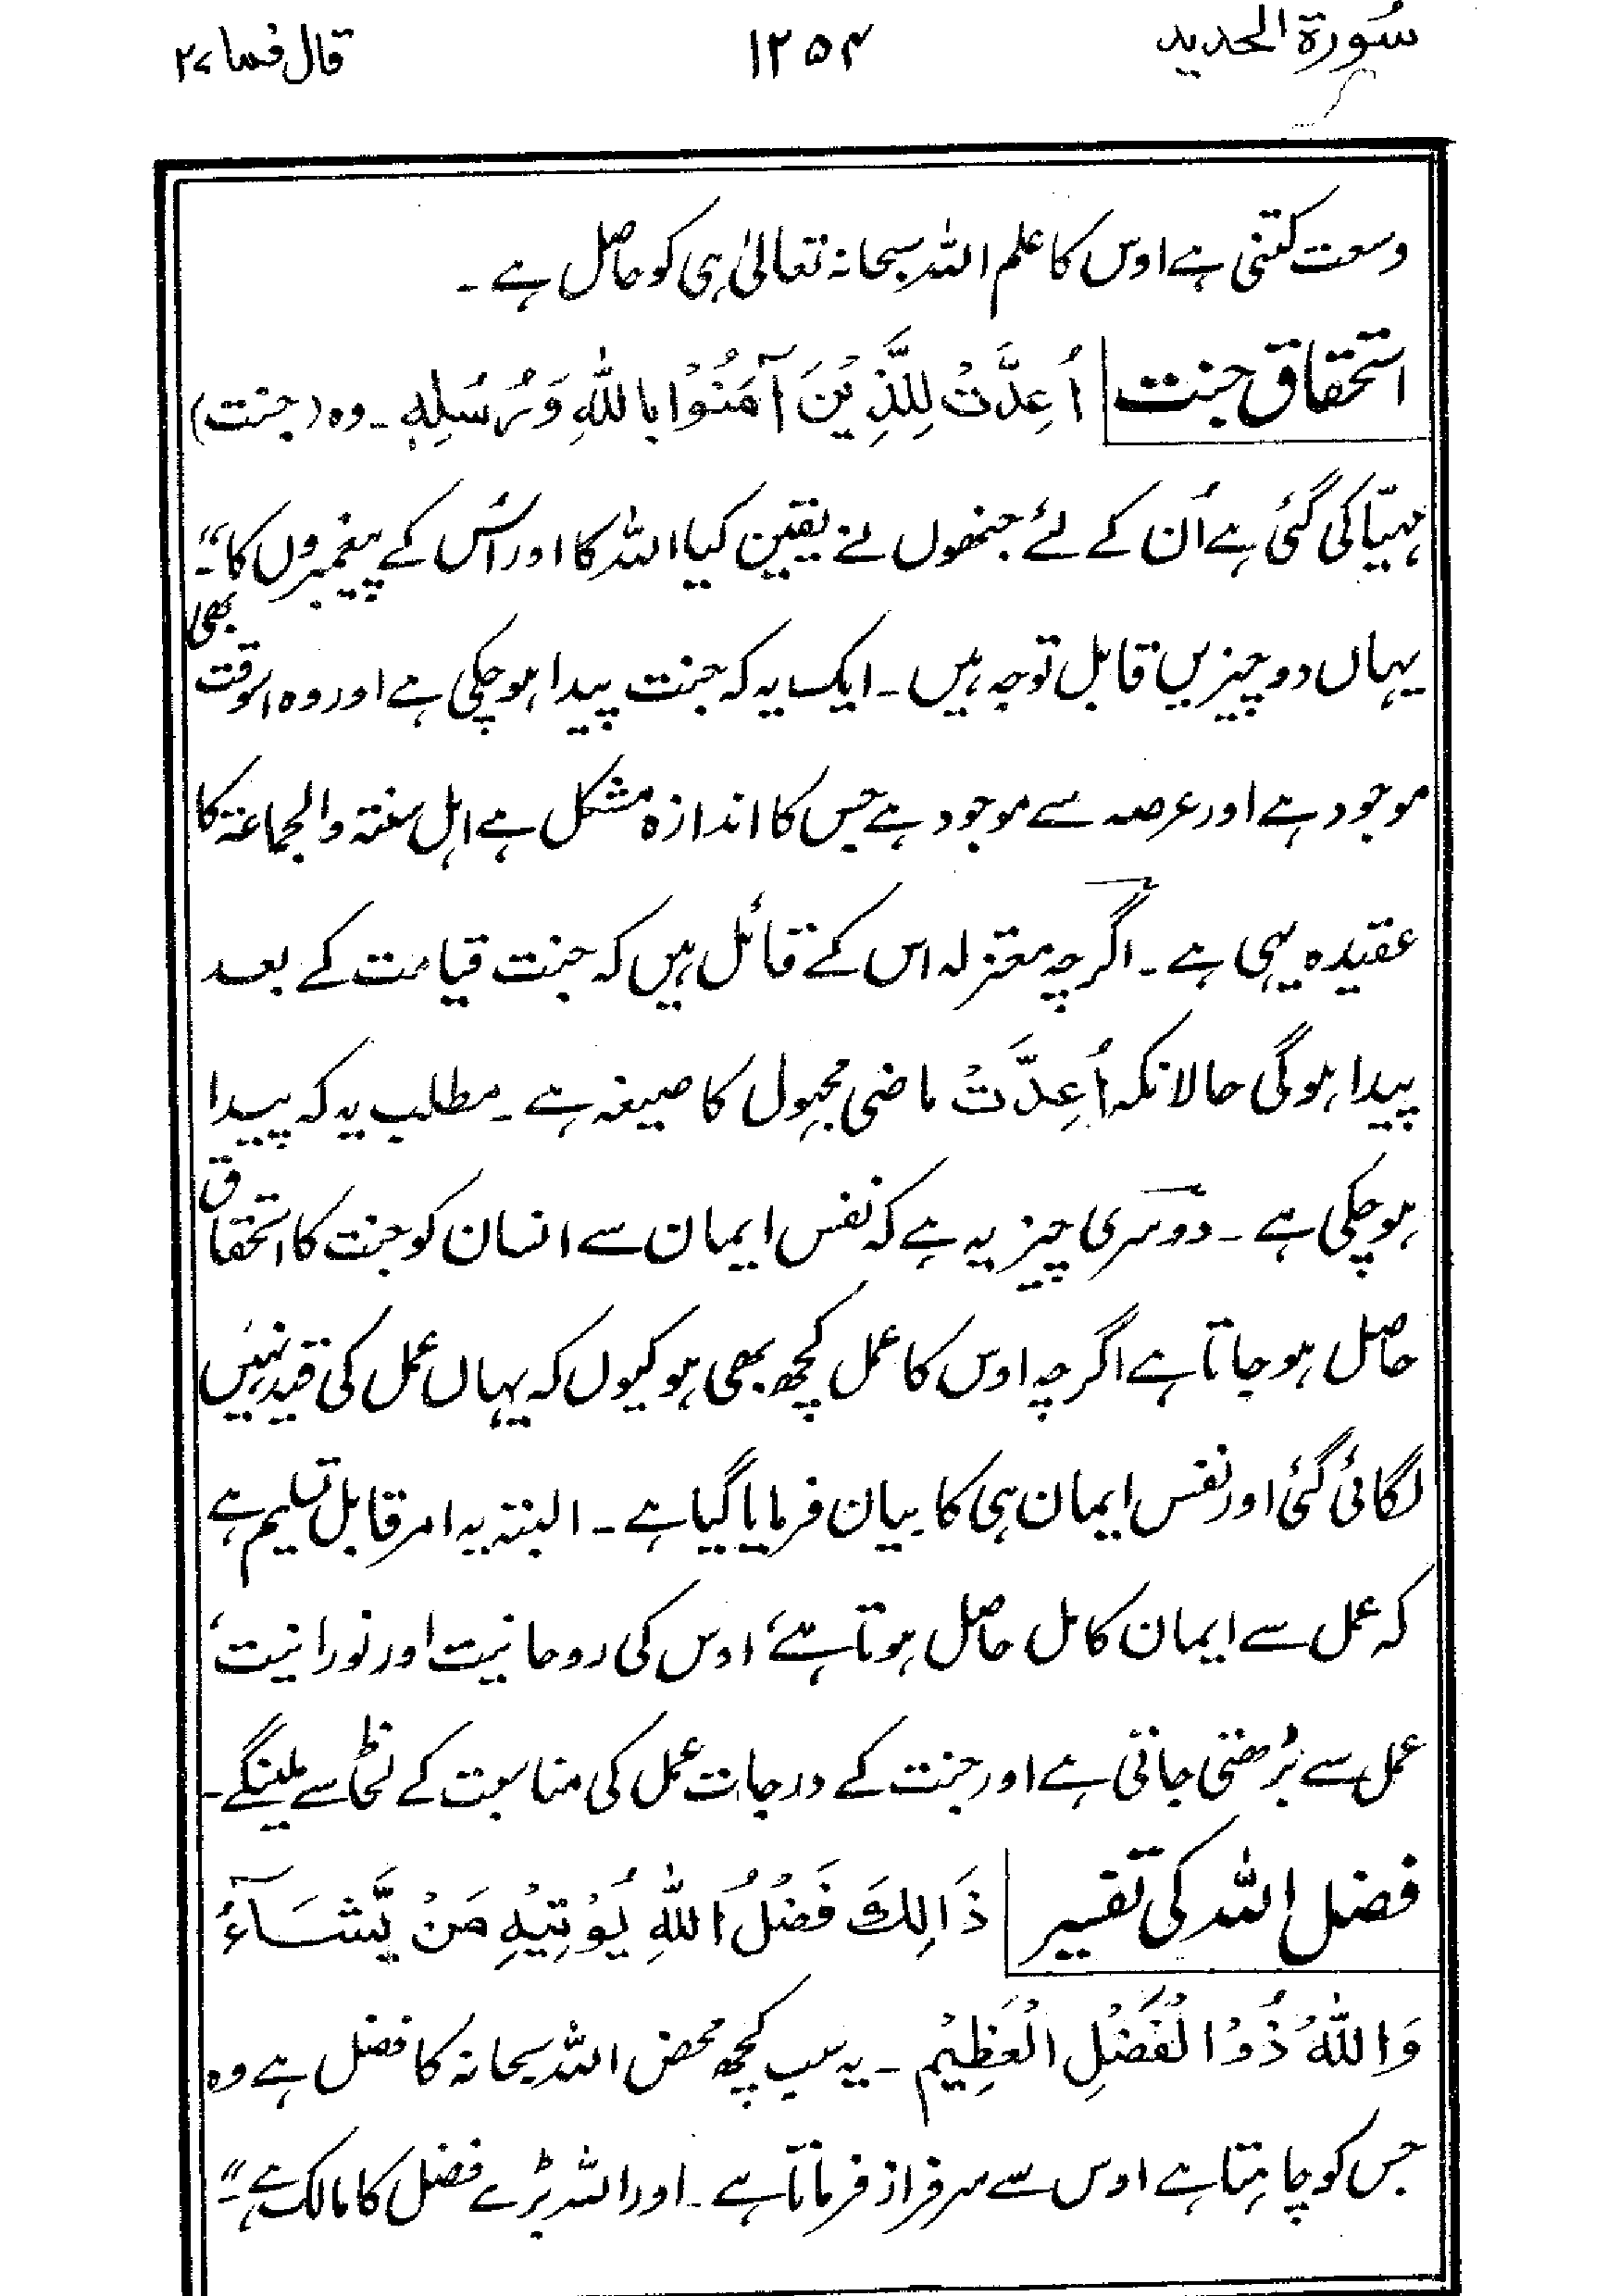 سُورة الحدید ۱۲۵۴ قال فما ۲۷
وسعت کتنی ہے اوس کا علم اللہ سبحانہ تعالیٰ ہی کو حاصل ہے ۔
استحقاق جنت اُعِدَّتْ لِلَّذِیْنَ آمَنُوْا بِاللّٰہِ وَرُسُلِہٖ ۔ وہ (جنت)
مہیّا کی گئی ہے اُن کے لئے جنھوں نے یقین کیا اللہ کا اور اُس کے پیغمبروں کا“۔
یہاں دو چیزیں قابل توجہ ہیں ۔ ایک یہ کہ جنت پیدا ہوچکی ہے اور وہ اسوقت بھی
موجود ہے اور عرصہ سے موجود ہے جس کا اندازہ مشکل ہے اہل سنتہ والجماعۃ کا
عقیدہ یہی ہے ۔ اگرچہ معتزلہ اس کے قائل ہیں کہ جنت قیامت کے بعد
پیدا ہوگی حالانکہ اُعِدَّتْ ماضی مجہول کا صیغہ ہے ۔ مطلب یہ کہ پیدا
ہوچکی ہے ۔ دوسری چیز یہ ہے کہ نفس ایمان سے انسان کو جنت کا استحقاق
حاصل ہوجاتا ہے اگرچہ اوس کا عمل کچھ بھی ہو کیوں کہ یہاں عمل کی قید نہیں
لگائی گئی اور نفس ایمان ہی کا بیان فرمایا گیا ہے ۔ البتہ یہ امر قابل تسلیم ہے
کہ عمل سے ایمان کامل حاصل ہوتا ہے، اوس کی روحانیت اور نورانیت،
عمل سے بڑھتی جاتی ہے اور جنت کے درجات عمل کی مناسبت کے لحاظ سے ملینگے ۔
فضل اللہ کی تفسیر ذَالِکَ فَضْلُ اللّٰہِ یُوْتِیْہِ مَنْ یَّشَآءُ
وَاللّٰہُ ذُوْالْفَضْلِ الْعَظِیْم ۔ یہ سب کچھ محض اللہ سبحانہ کا فضل ہے وہ
جس کو چاہتا ہے اوس سے سرفراز فرماتا ہے ۔ اور اللہ بڑے فضل کا مالک ہے“۔